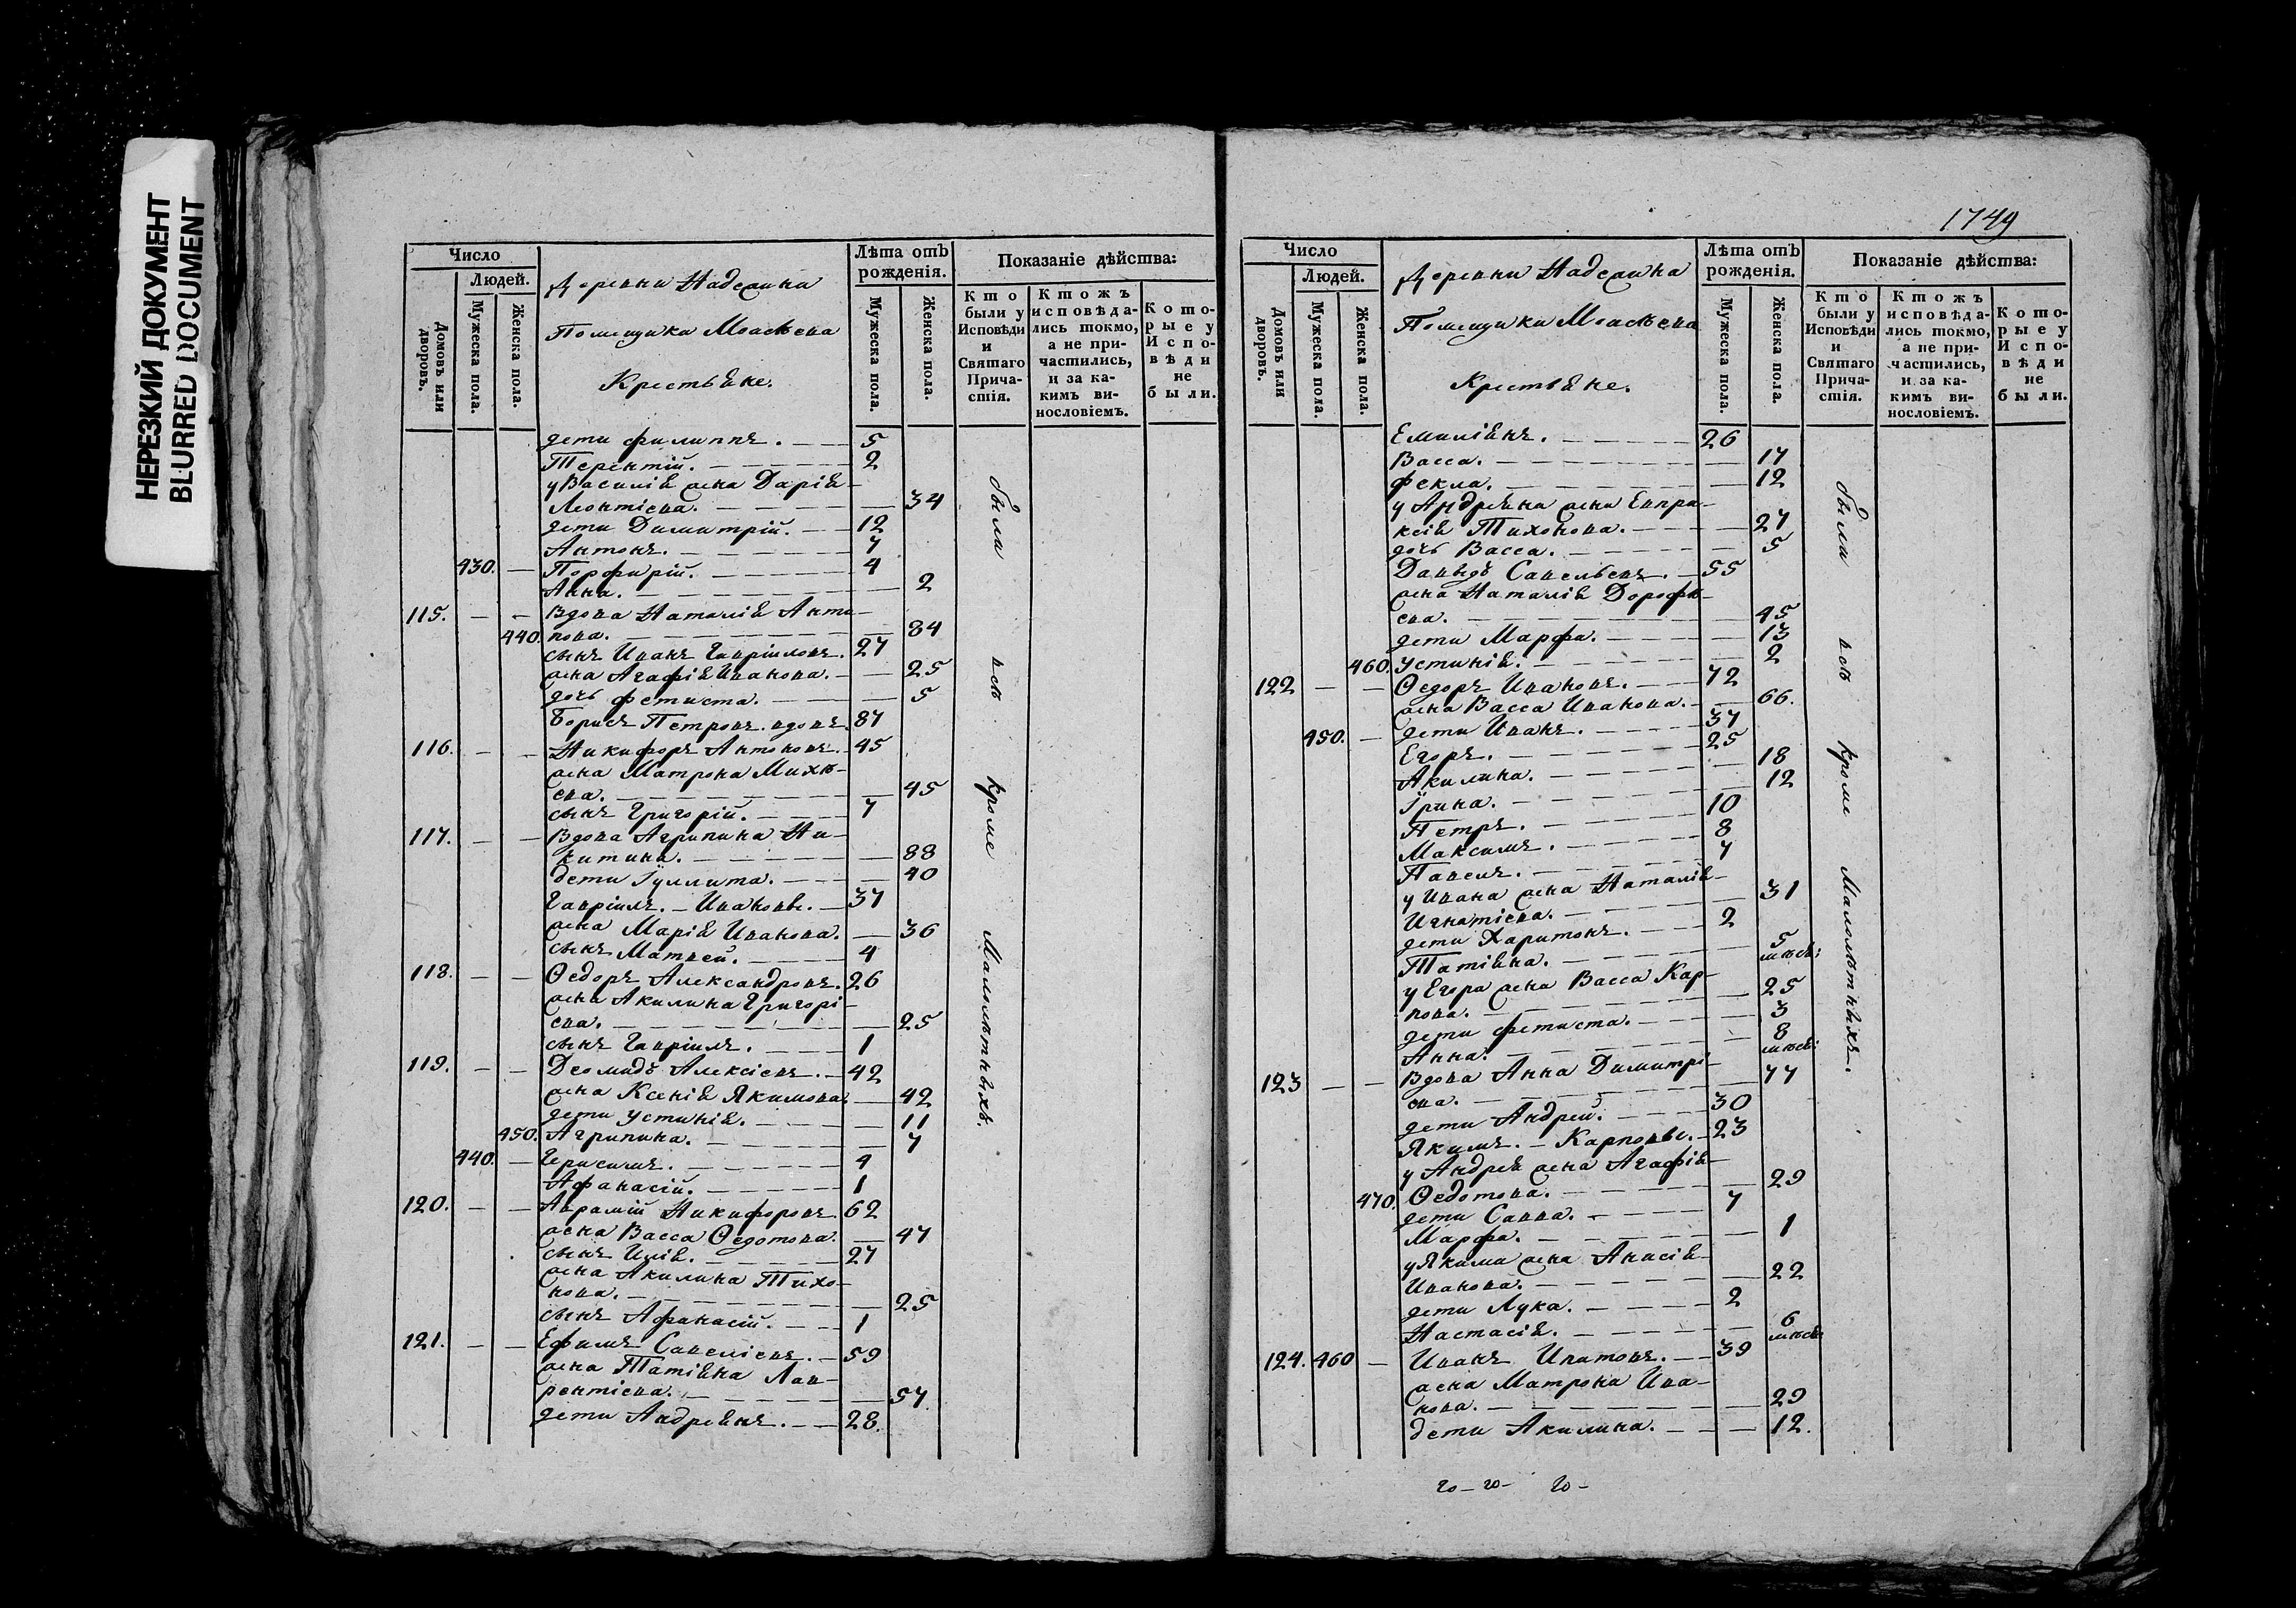 НЕРЕЗКИЙ ДОКУМЕНТ
BLURRED DOCUMENT
Число
Людей.
Домовъ или дворовъ.
Мужеска пола.
Женска пола.
Деревни Надеина
Помещика
Крестьяне.
Лѣта отъ рожденія.
Мужеска пола.
Женска пола.
Показаніе дѣйства:
Кто были у Исповѣди и Святаго Причастія.
Ктожъ исповѣдались токмо, а не причастились, и за какимъ винословіемъ.
Которые у Исповѣди не были.
дети Филиппъ. 5
Терентій. 2
у Василія жена Дарія
Леонтіева. 34
дети Димитрій. 12
Антонъ. 7
430. Порфирій. 4
Анна. 2
115. Вдова Наталія Анти-
440. пова. 84
сынъ Иванъ Гавріиловъ. 27
жена Агафія Иванова. 25
дочь Фетиста. 5
Борисъ Петровъ вдовъ. 87
116. Никифоръ Антоновъ. 45
жена Матрона Михѣ-
ева. 45
сынъ Григорій. 7
117. Вдова Агрипина Ни-
китина. 88
дети Іуллита. 40
Гавріилъ. – Ивановы. 37
жена Марія Иванова. 36
сынъ Матвей. 4
118. Ѳедоръ Александровъ. 26
жена Акилина Григорі-
ева. 25
сынъ Гавріилъ. 1
119. Деомидъ Алексіевъ. 42
жена Ксенія Якимова. 42
дети Устинія. 11
450. Агрипина. 7
440. Герасимъ. 4
Афанасій. 1
120. Аврамій Никифоровъ. 62
жена Васса Ѳедотова. 47
сынъ Илія. 27
жена Акилина Тихо-
нова. 25
сынъ Афанасій. 1
121. Ефимъ Савеліевъ. 59
жена Татіяна Лав-
рентіева. 57
дети Андреянъ. 28.
были всѣ кроме Малолѣтныхъ.
1749
Число
Людей.
Домовъ или дворовъ.
Мужеска пола.
Женска пола.
Деревни Надеина
Помещика
Крестьяне.
Лѣта отъ рожденія.
Мужеска пола.
Женска пола.
Показаніе дѣйства:
Кто были у Исповѣди и Святаго Причастія.
Ктожъ исповѣдались токмо, а не причастились, и за какимъ винословіемъ.
Которые у Исповѣди не были.
Емиліянъ. 26
Васса. 17
Фекла. 12
у Андреяна жена Евпра-
ксія Тихонова. 27
дочь Васса. 5
Давыдъ Савельевъ. 55
жена Наталія Дорофѣ-
ева. 45
дети Марфа. 13
460. Устинія. 2
122 Ѳедоръ Ивановъ. 72
жена Васса Иванова. 66.
450. дети Иванъ. 37
Егоръ. 25
Акилина. 18
Ірина. 12
Петръ. 10
Максимъ. 8
Павелъ. 7
у Ивана жена Наталія
Игнатіева. 31
дети Харитонъ. 2
Татіяна. 5 мѣсѣ:
у Егора жена Васса Кар-
пова. 25
дети Фетиста. 3
Анна. 8 мѣсѣ:
123 Вдова Анна Димитрі-
ева. 77
дети Андрей. 30
Якимъ. – Карповы. 23
у Андрея жена Агафія
470. Ѳедотова. 29
дети Савва. 7
Марфа. 1
у Якима жена Анисія
Иванова. 22
дети Лука. 2
Настасія. 6 мѣсѣ:
124. 460 Иванъ Ипатовъ. 39
жена Матрона Ива-
нова. 29
дети Акилина. 12.
были всѣ кроме Малолѣтныхъ.